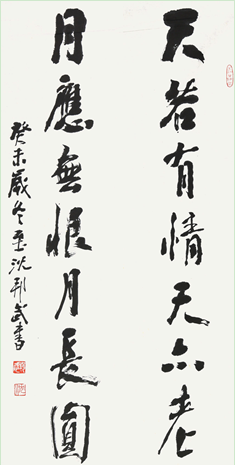 天若有情天亦老
月應無恨月長圓
癸未嚴冬至沈邢武書